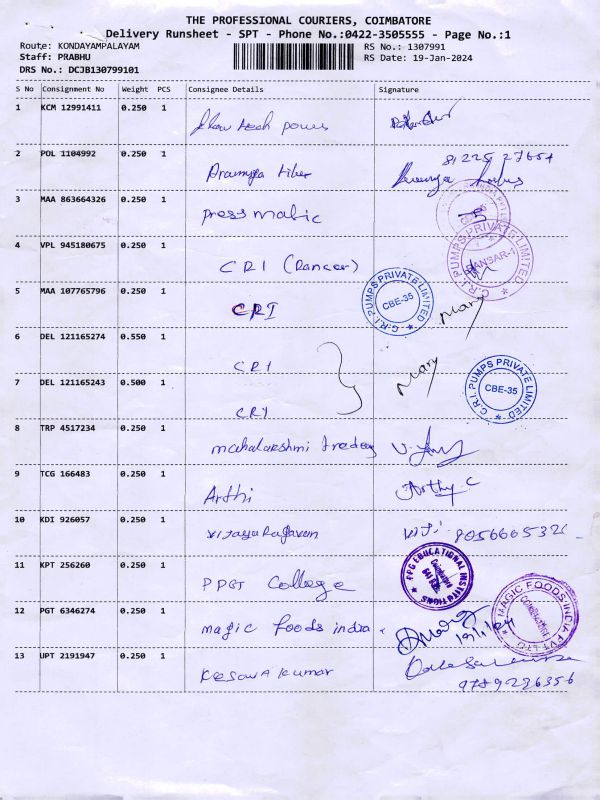 THE PROFESSIONAL COURIERS, COIMBATORE
Delivery Runsheet - SPT - Phone No.:0422-3505555 - Page No.:1
Route: KONDAYAMPALAYAM RS No.: 1307991
Staff: PRABHU RS Date: 19-Jan-2024
DRS No.: DCJB130799101
S No Consignment No Weight PCS Consignee Details Signature
1 KCM 12991411 0.250 1
Flow tech power
2 POL 1104992 0.250 1
81225 27664
3 MAA 863664326 0.250 1
Pressmatic
4 VPL 945180675 0.250 1
C.R.I. PUMPS PRIVATE LIMITED
CRI (Ranceer)
5 MAA 107765796 0.250 1
C.R.I. PUMPS PRIVATE LIMITED CBE-35
CRI Mary
6 DEL 121165274 0.550 1
CRI Mary
7 DEL 121165243 0.500 1
C.R.I. PUMPS PRIVATE LIMITED CBE-35
CRI
8 TRP 4517234 0.250 1
mahalakshmi tradeg
9 TCG 166483 0.250 1
Arthi Arthy C
10 KDI 926057 0.250 1
Vijayaragavan Viji
11 KPT 256260 0.250 1
PPG EDUCATIONAL INSTITUTIONS Coimbatore
PPGT College
12 PGT 6346274 0.250 1
MAGIC FOODS INDIA PVT LTD COIMBATORE
magic foods india 19/1/24
13 UPT 2191947 0.250 1
Kesava kumar
9789236356